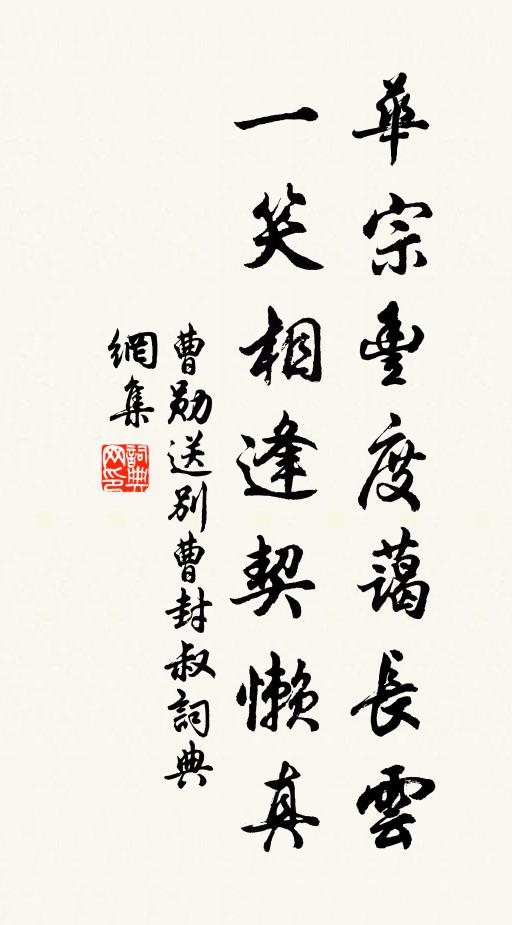 華宗豊度藹長雲
一笑相逢契懶真
曹勛送別曹封叔詞典
網集
詞典網印